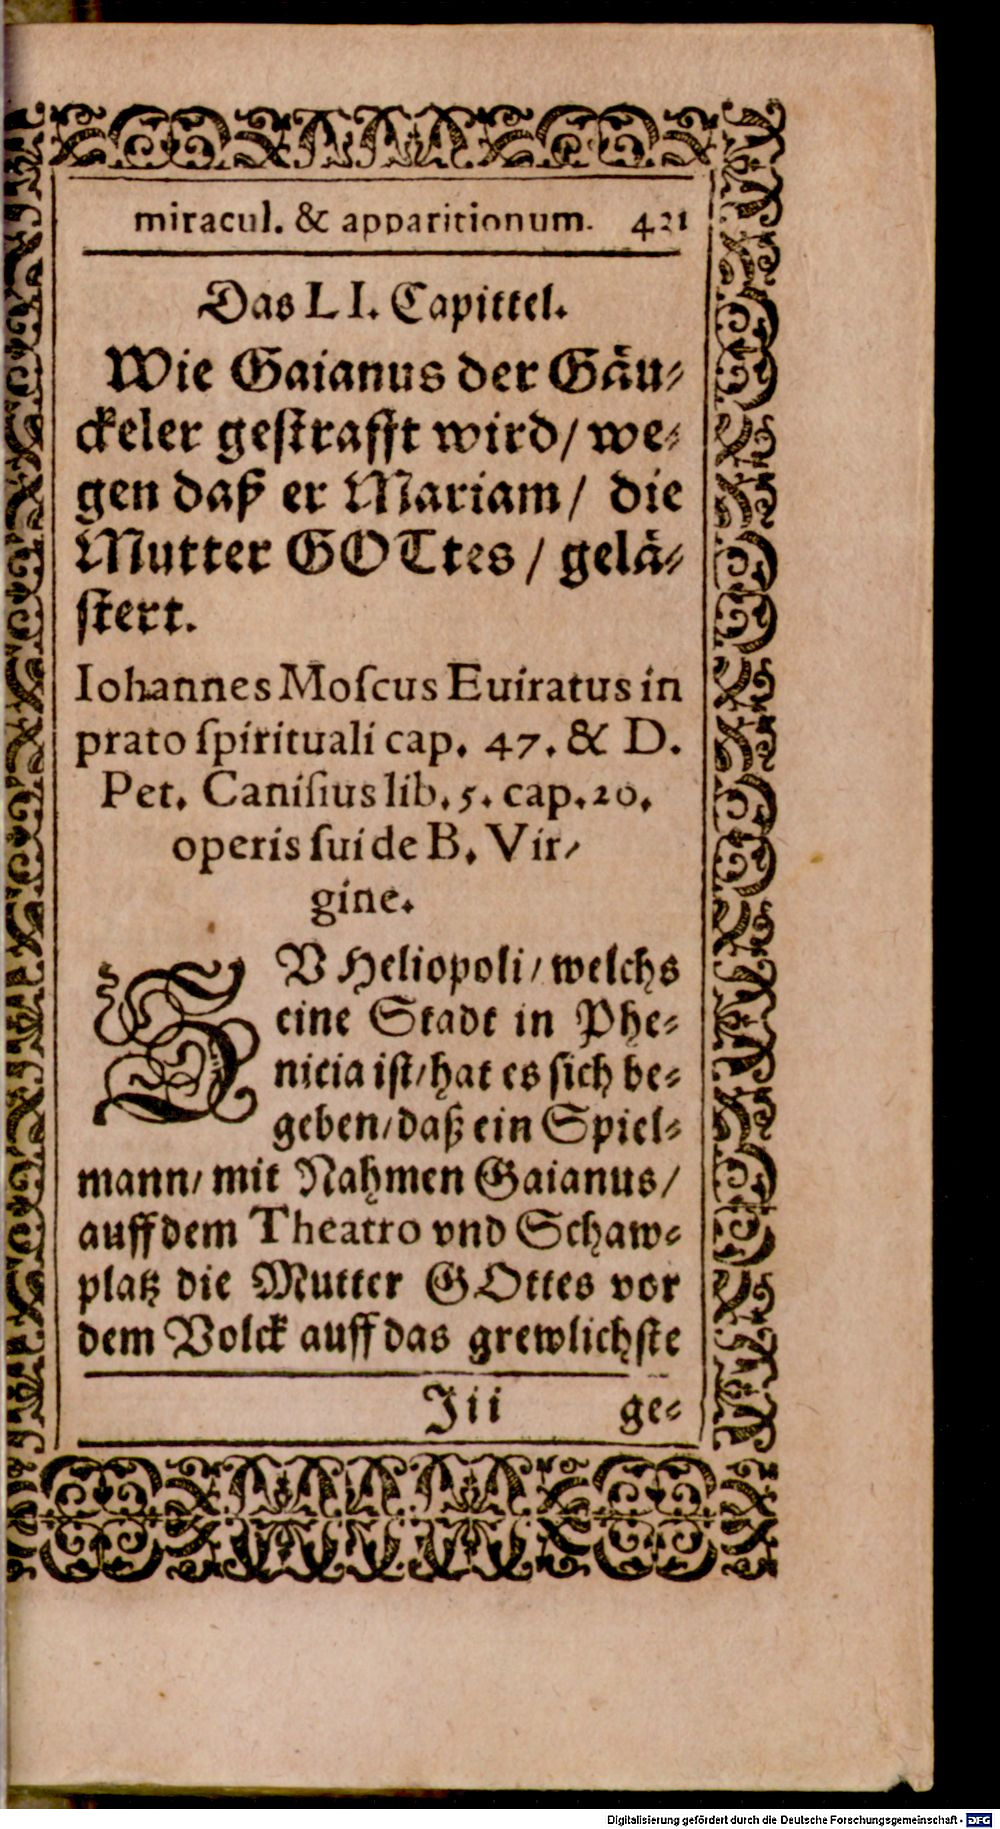 miracul. & apparitionum. 421
Das LI. Capittel.
Wie Gaianus der Gäu⸗
ckeler gestrafft wird/ we⸗
gen daß er Mariam/ die
Mutter GOTtes/ gelä⸗
stert.
Iohannes Moſcus Euiratus in
prato ſpirituali cap. 47. & D.
Pet. Caniſius lib. 5. cap. 20.
operis ſui de B. Vir⸗
gine.
ZV Heliopoli/ welchs
eine Stadt in Phe⸗
nicia ist/ hat es sich be⸗
geben/ daß ein Spiel⸗
mann/ mit Nahmen Gaianus/
auff dem Theatro vnd Schaw⸗
platz die Mutter GOttes vor
dem Volck auff das grewlichste
Iii ge⸗
Digitalisierung gefördert durch die Deutsche Forschungsgemeinschaft - DFG